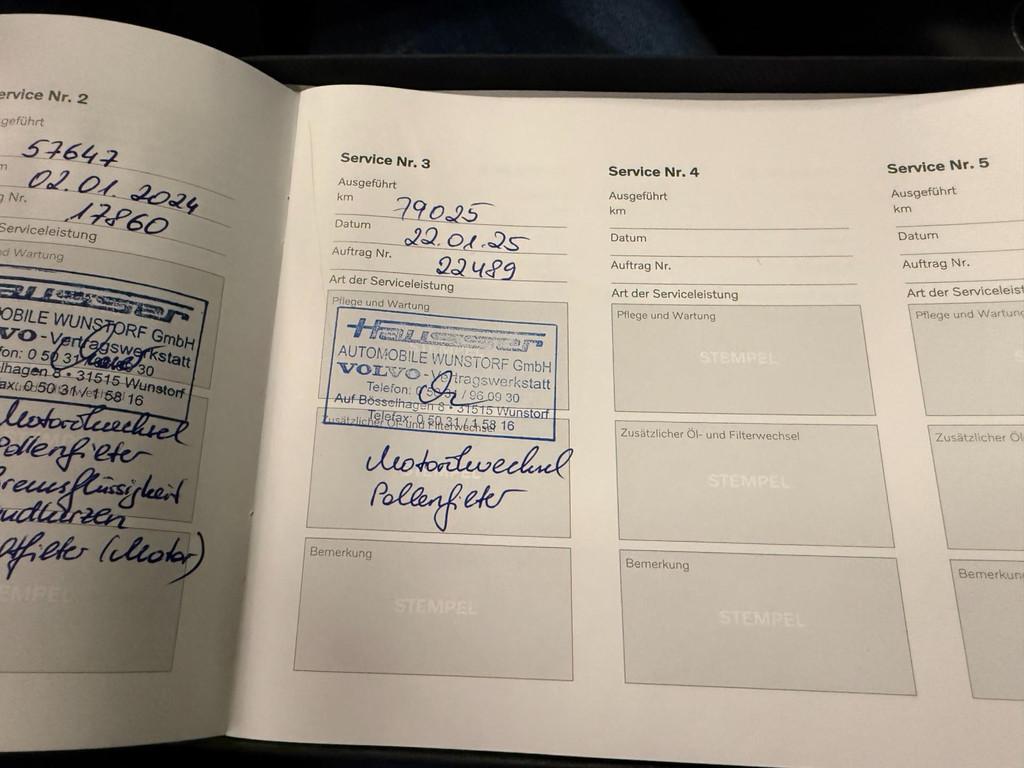 ervice Nr. 2
geführt
57647
m
02.01.2024
g Nr.
17860
Serviceleistung
nd Wartung
MOBILE WUNSTORF GmbH
VO-Vertragswerkstatt
fon: 0 50 31 30
elhagen 8 • 31515 Wunstorf
ax: 0 50 31 / 1 58 16
Motorölwechsel
Pollenfilter
remsflüssigkeit
ndkerzen
ftfilter (Motor)
STEMPEL
Service Nr. 3
Ausgeführt
km
79025
Datum
22.01.25
Auftrag Nr.
22489
Art der Serviceleistung
Pflege und Wartung
AUTOMOBILE WUNSTORF GmbH
VOLVO-Vertragswerkstatt
Telefon: 0 50 31 / 96 09 30
Auf Bösselhagen 8 • 31515 Wunstorf
Telefax: 0 50 31 / 1 58 16
Zusätzlicher Öl- und Filterwechsel
Motorölwechsel
Pollenfilter
Bemerkung
STEMPEL
Service Nr. 4
Ausgeführt
km
Datum
Auftrag Nr.
Art der Serviceleistung
Pflege und Wartung
STEMPEL
Zusätzlicher Öl- und Filterwechsel
STEMPEL
Bemerkung
STEMPEL
Service Nr. 5
Ausgeführt
km
Datum
Auftrag Nr.
Art der Serviceleist
Pflege und Wartung
S
Zusätzlicher Ö
Bemerkun